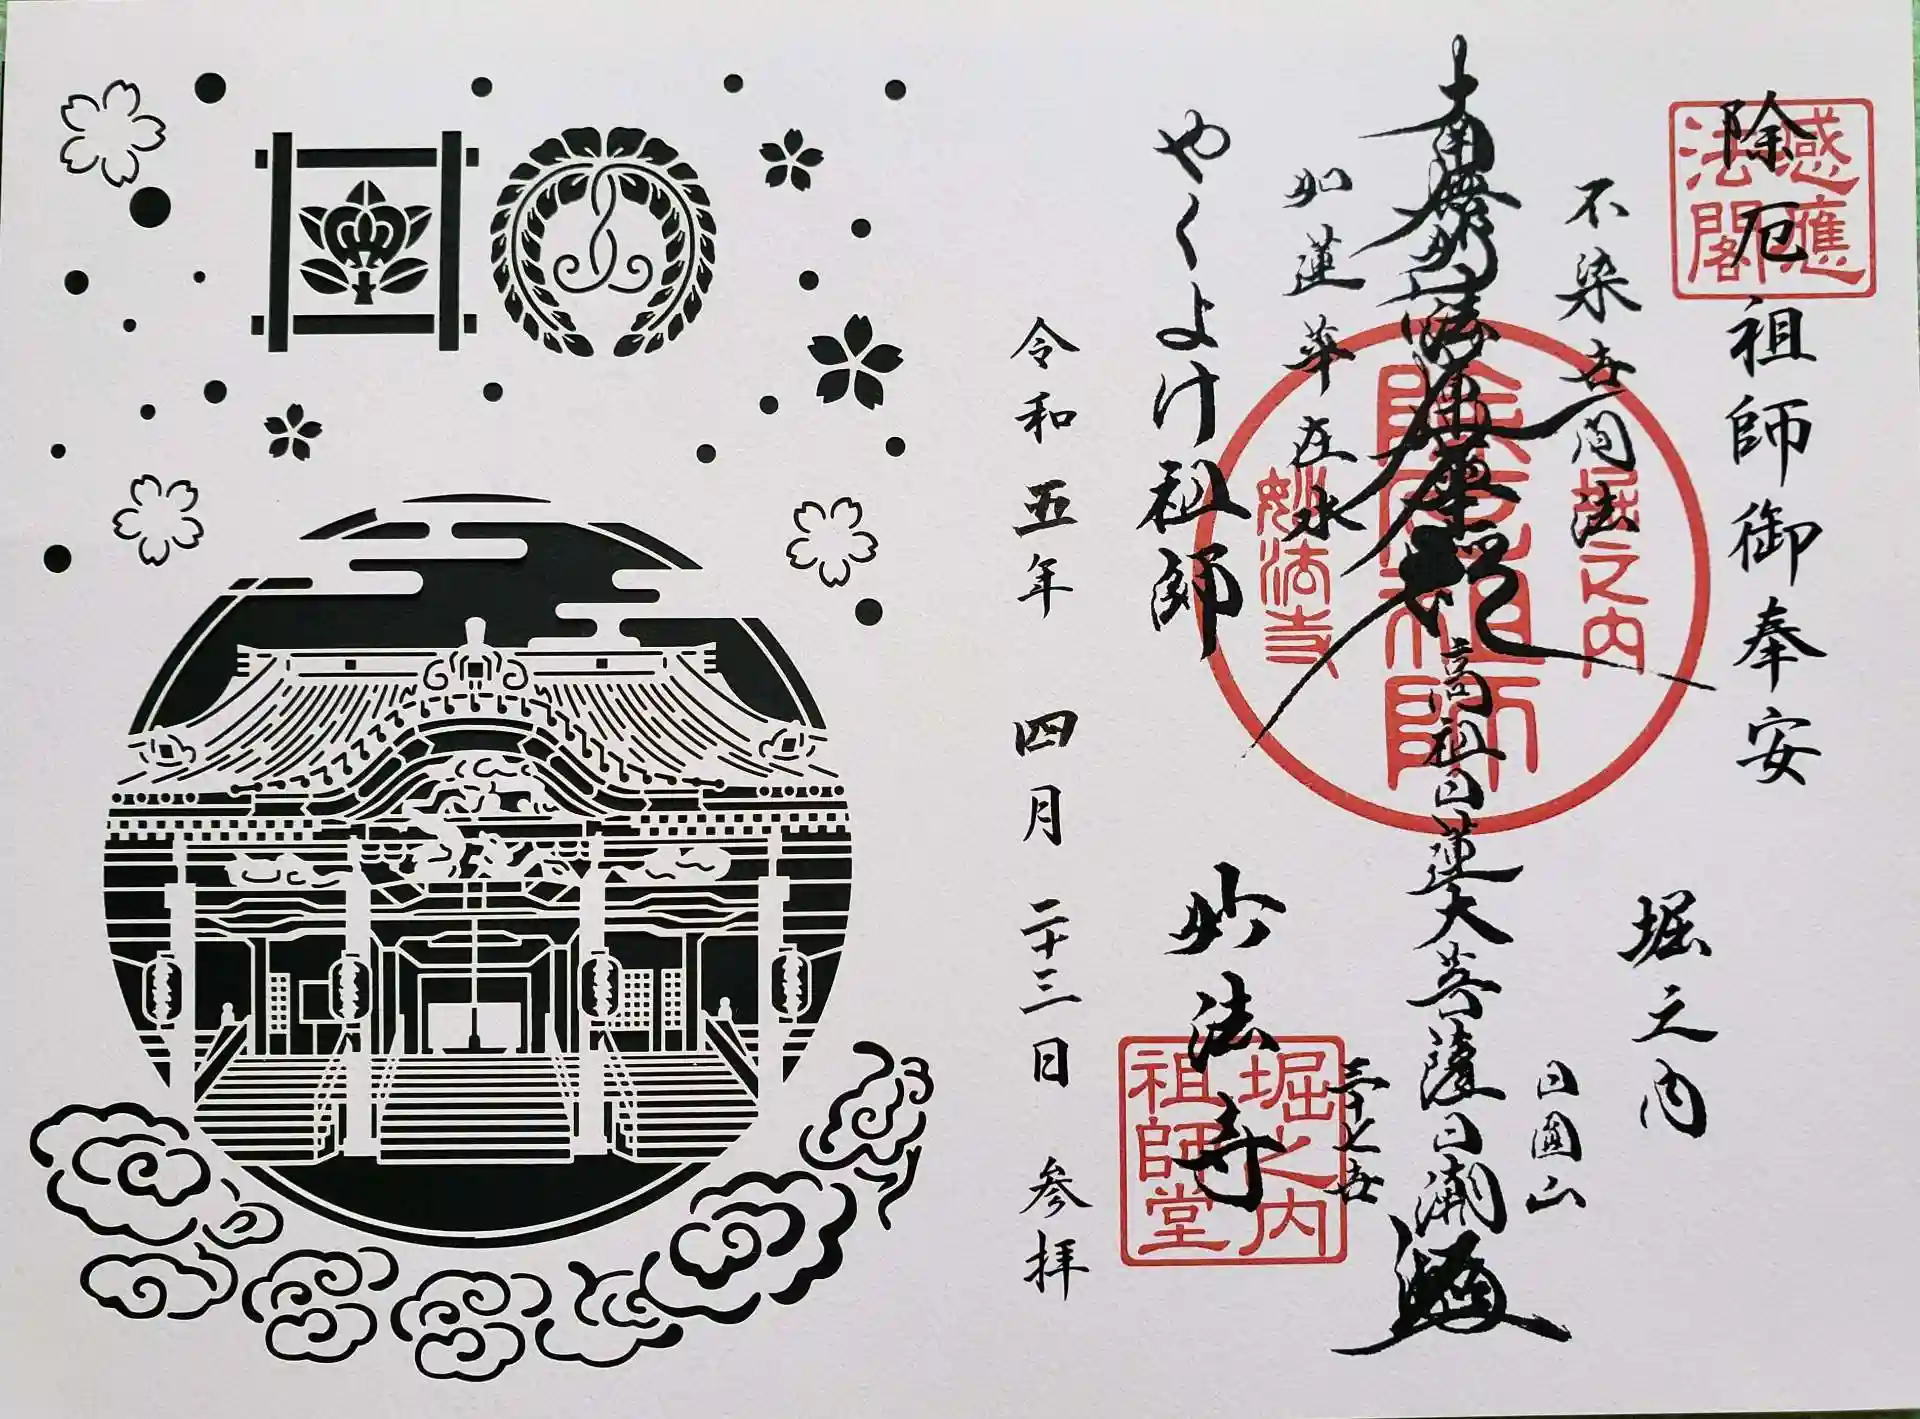 除厄祖師御奉安
感應法閣
堀之内
不染世間法
日圓山
南無妙法蓮華経
高祖日蓮大菩薩
如蓮華在水
三十七世
堀之内
除厄祖師
妙法寺
やくよけ祖師
妙法寺
堀之内
祖師堂
令和五年 四月二十三日 参拝